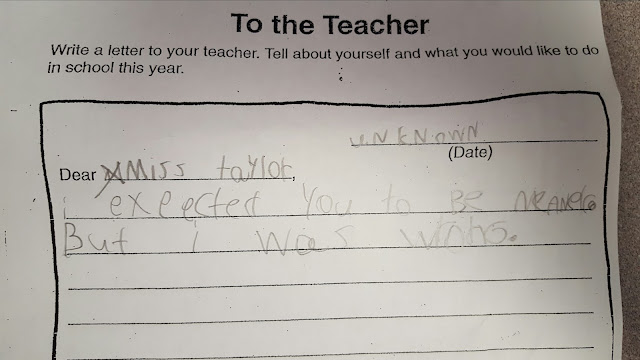 To the Teacher
Write a letter to your teacher. Tell about yourself and what you would like to do
in school this year.
UNKNOWN
(Date)
Dear Miss taylor,
i expected you to BE
But i was